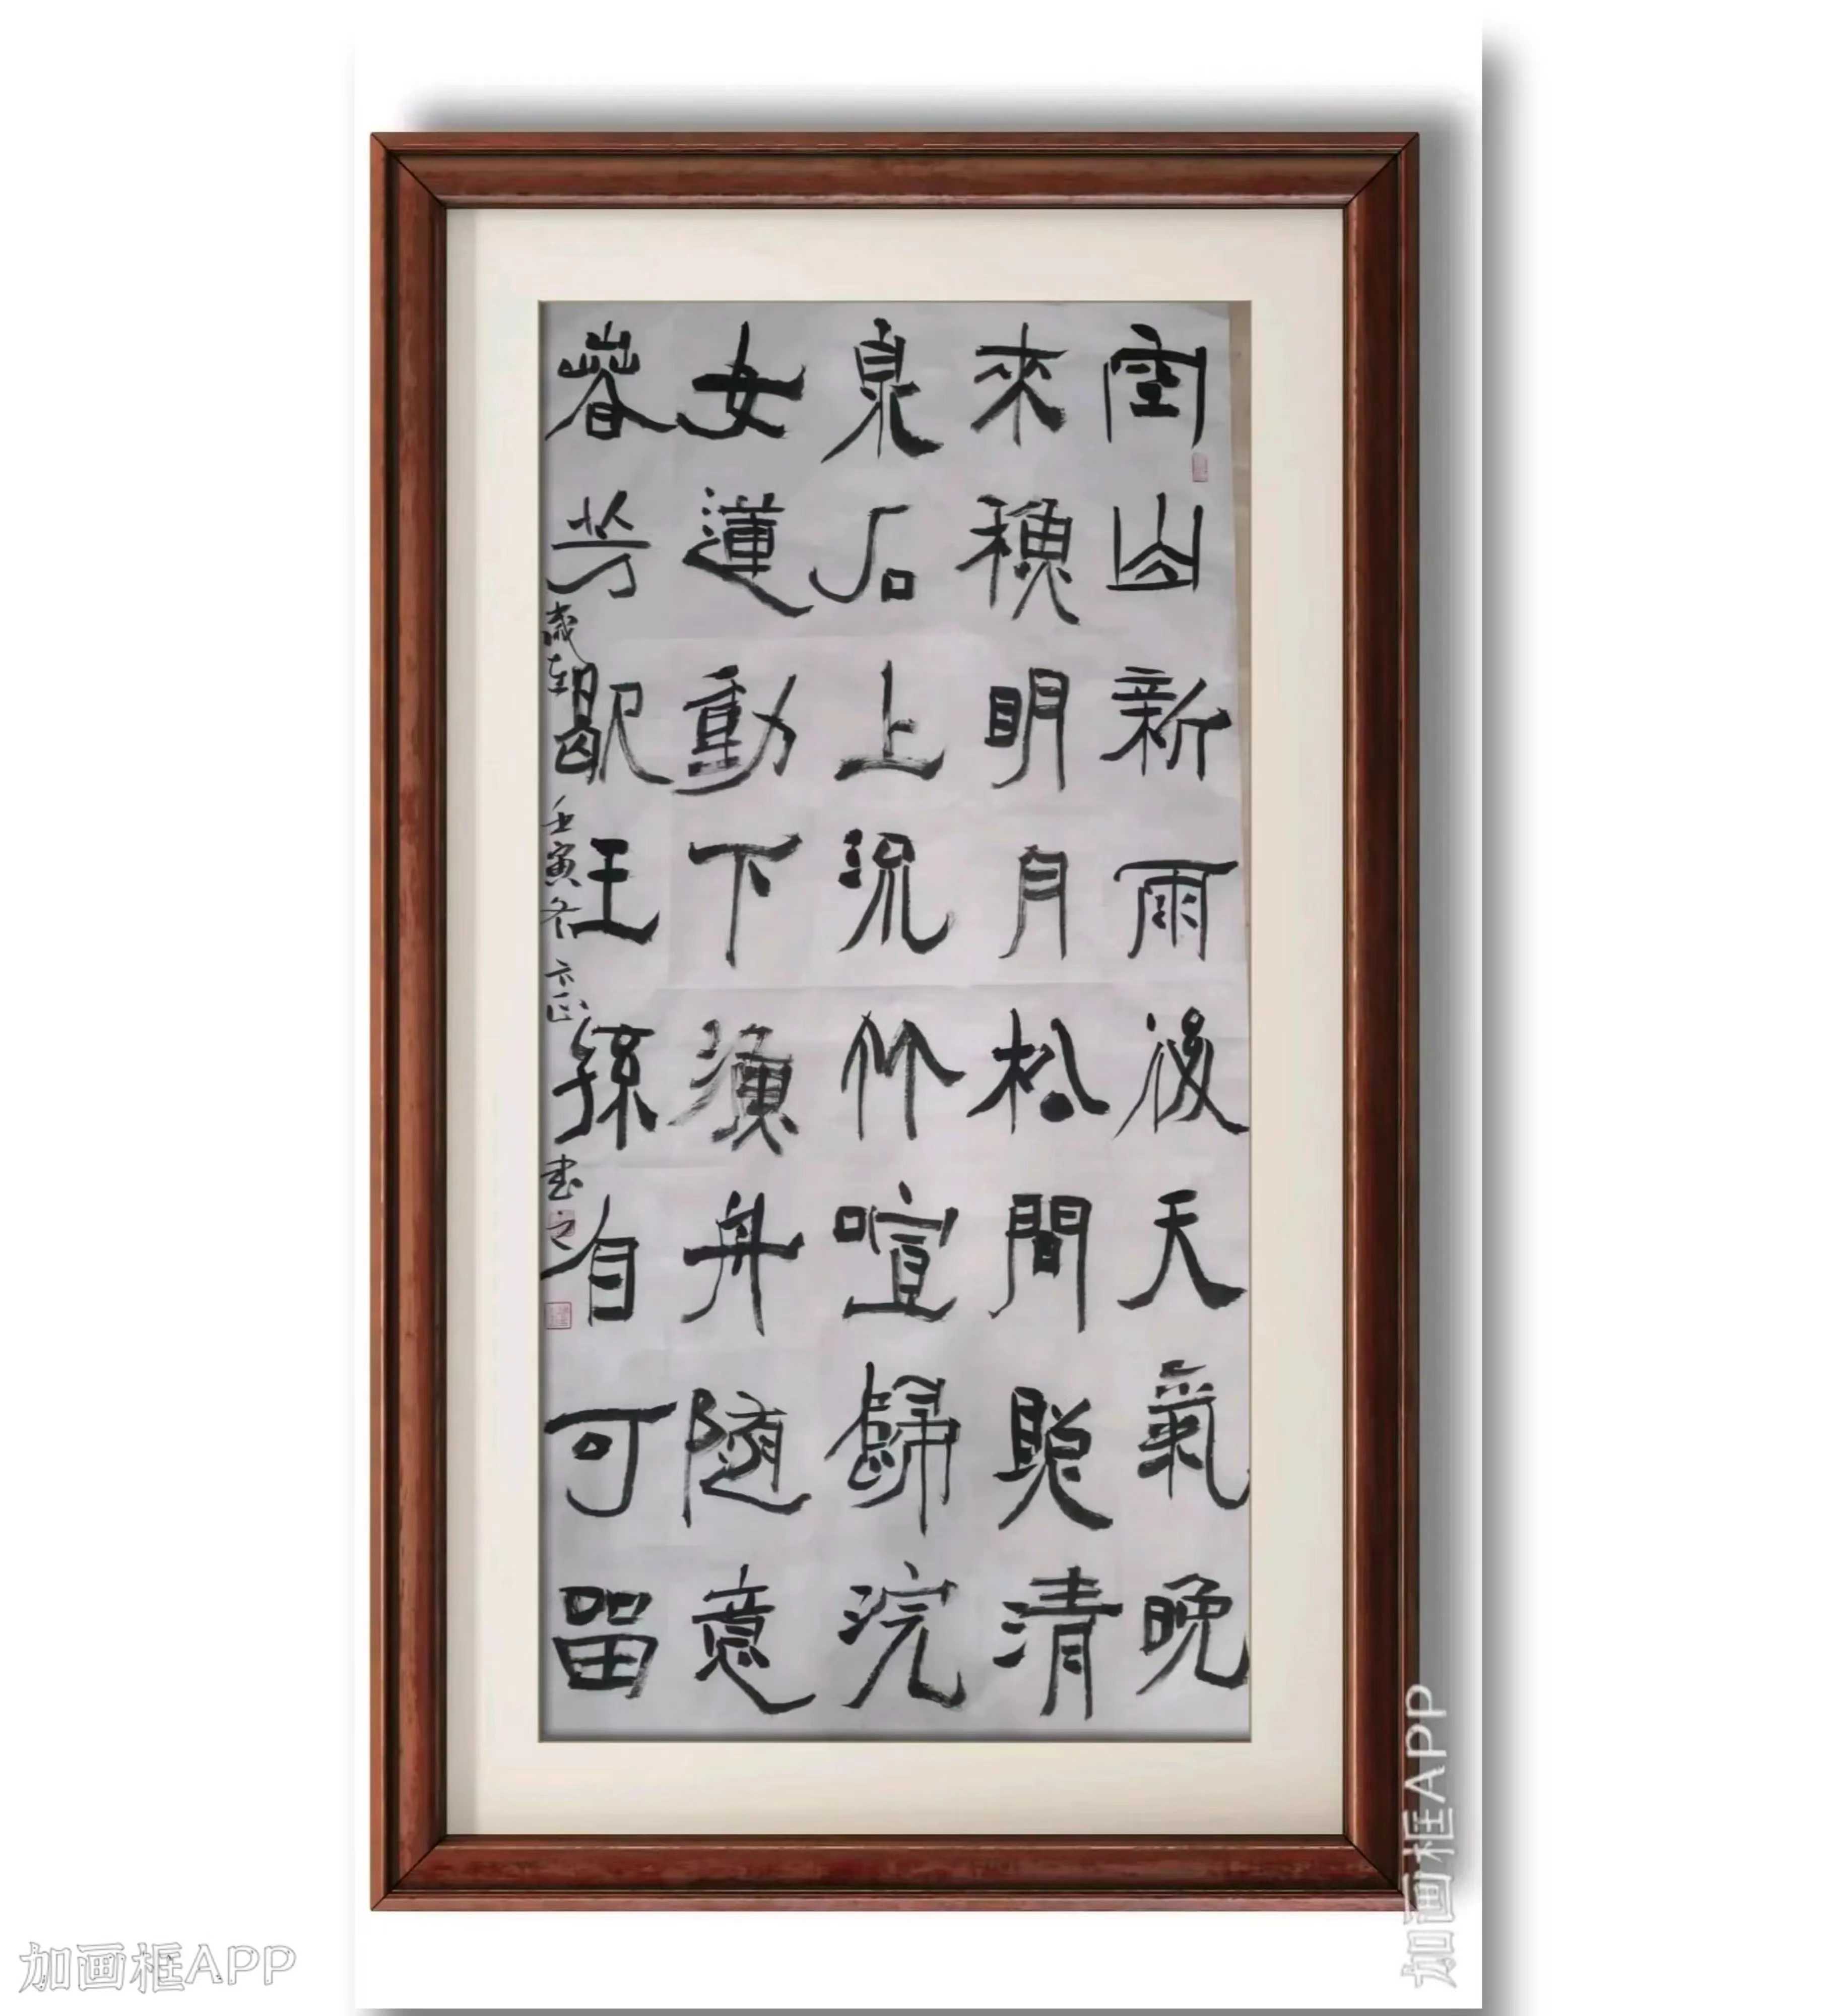 空山新雨後天氣晚
來秋明月松間照清
泉石上流竹喧歸浣
女蓮動下漁舟隨意
春芳歇王孫自可留
歲朝壬寅冬書之
加画框APP
加画框APP